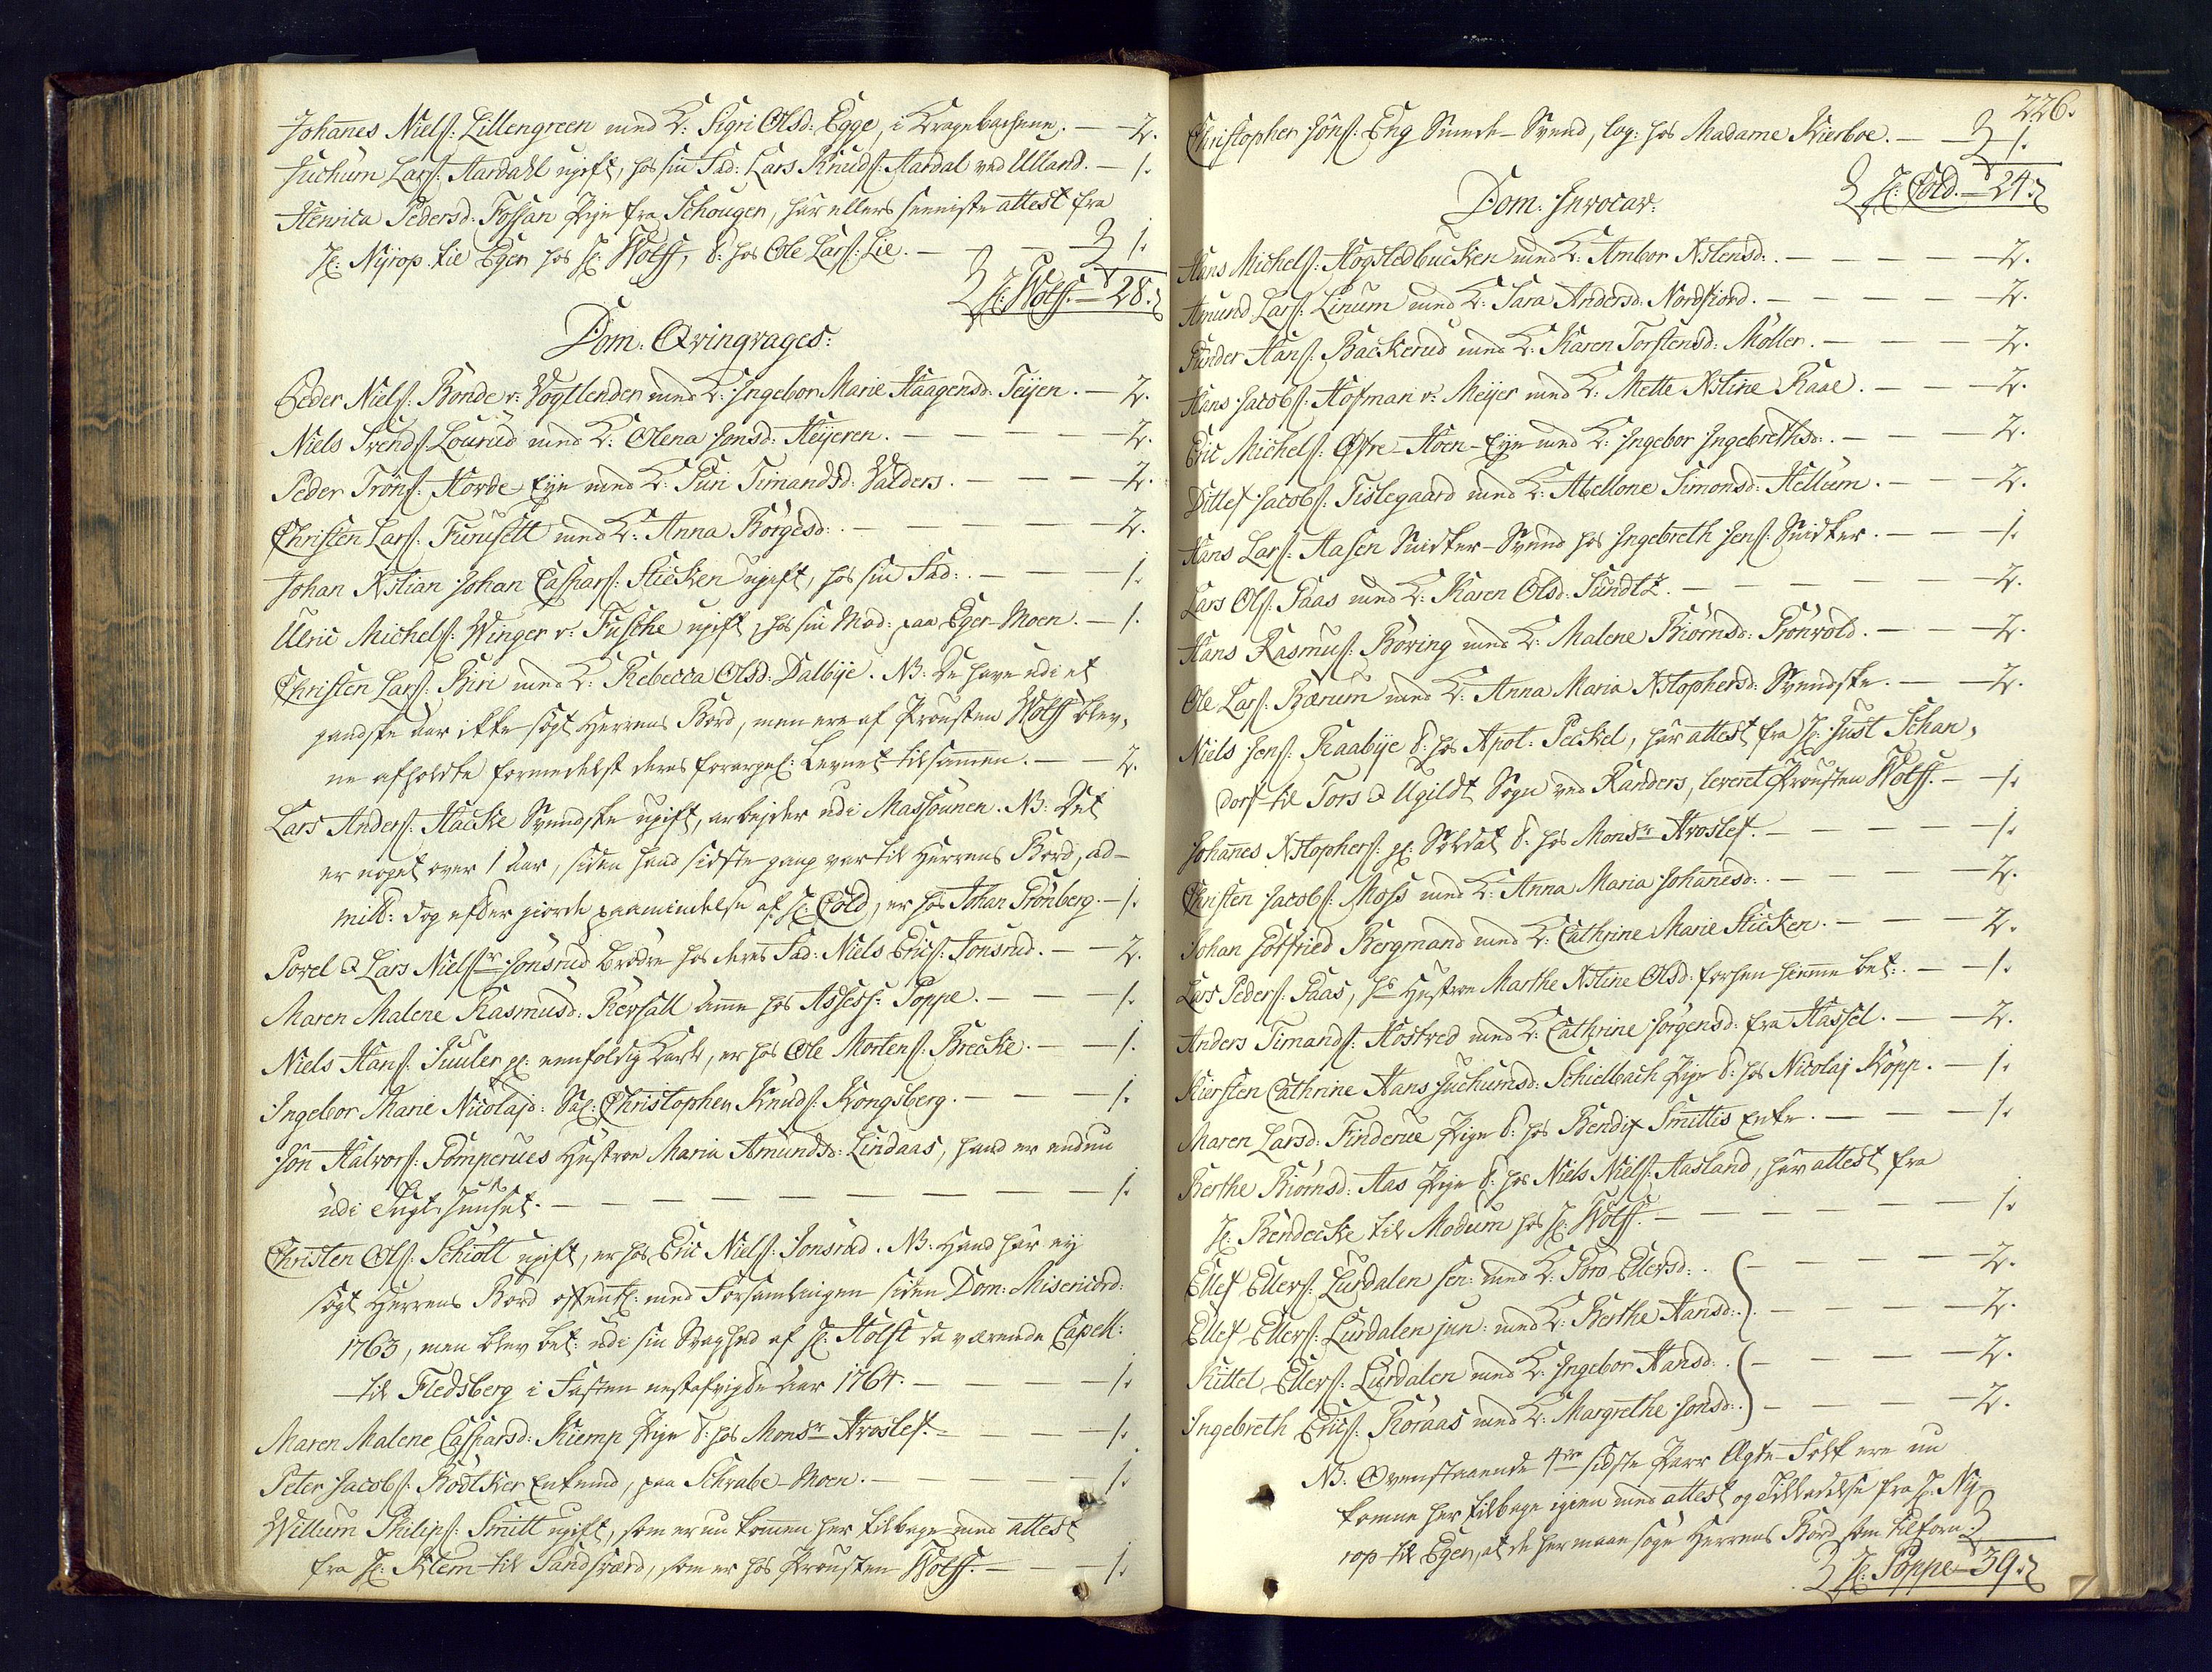 Johan̅es Nielsß: Lillengreen med K: Sigri Olsd: Egge, i Kragebachene. — 2.
Juchum Larß: Aardahl ugift, hos sin Fad: Lars Knudß: Aardal ved Ulland. — 1.
Henrica Pedersd: Fossan Pige fra Schougen, har ellers seeniste attest fra
Hr: Nyrop til Eger hos Hr: Wolff, t: hos Ole Larß: Lie. — 1.
Hr: Wolff. — 28.
Dom: Qvinqvages:
Peder Nielß: Bonde v: Vogtlender med K: Ingebor Marie Haagensd: Teijen. — 2.
Niels Svendß: Lourud med K: Olena Jonsd: Heijeren. — — — 2.
Peder Trönß: Horde Eye med K: Guri Simandsd: Valders. — — — 2.
Christen Larß: Furusett med K: Anna Börgesd: — — — 2.
Johan Xstian Johan Casparß: Sticken ugift, hos sin Fad: — — — 1.
Ulric Michelß: Winger v: Fusche ugift, hos sin Mod: paa Eger-Moen. — 1.
Christen Larß: Biri med K: Rebecca Olsd: Dalbye. NB: De have udi et
gandske Aar ikke sögt Herrens Bord, men ere af Provsten Wolff blev,
ne afholdte formedelst deres forargel: Levnet tilsam̅en. — — 2.
Lars Anderß: Hacke Svendske ugift, arbejder udi Massounen. NB: Det
er noget over 1 Aar, siden hand sidste gang var til Herrens Bord, ad-
mitt: dog efter giorde paamindelse af Hr: Cold, er hos Johan Grönberg. — 1.
Povel & Lars Nielßr Jonsrud Brödre hos deres Fad: Niels Ericß: Jonsrud. — — 2.
Maren Malene Rasmusd: Revsall Am̅e hos Assess: Poppe. — — — 1.
Niels Hanß: Juuler gl: eenfoldig Karl, er hos Ole Mortenß: Brecke. — — 1.
Ingebor Marie Nicolajd: Sal: Christopher Knudß: Kongsberg. — — — 1.
Jon Halvorß: Gomperues Hustroe Maria Amundsd: Lindaas, hand er endnu
udi Tugt-Huuset. — — — — — — — — 1.
Christen Olß: Schiött ugift, er hos Eric Nielß: Jonsrud. NB: Hand har ey
sögt Herrens Bord offentl: med Forsamlingen siden Dom: Misericord:
1763, men blev bet: udi sin Svaghed af Hr: Holst da værende Capell:
til Fledsberg i Fasten nestafvigde Aar 1764. — — — — 1.
Maren Malene Casparsd: Kiemp Pige t: hos Monsr Hvoslef. — — — 1.
Peter Jacobß: Bödtker Enkemd, paa Schrabe-Moen. — — — 1.
Willum Philipß: Smitt ugift, som er nu kom̅en her tilbage med attest
fra Hr: Klem til Sandsværd, som er hos Provsten Wolff. — — 1.
226.
Christopher Jönß: Eng Smede-Svend, log: hos Madame Kierboe. — 1.
Hr: Cold. — 24.
Dom: Invocav:
Hans Michelß: Hogstedbacken med K: Ambor Xstensd: — — — — 2.
Amund Larß: Linum med K: Sara Andersd: Nordfiord. — — — — 2.
Gunder Hanß: Backerud med K: Karen Torstensd: Möller. — — — 2.
Hans Jacobß: Hofman v: Meyer med K: Mette Xstine Raae. — — — 2.
Eric Michelß: Öfre-Hoen-Eye med K: Ingebor Ingebrethsd: — — — 2.
Ditlef Jacobß: Fislegaard med K: Abellone Simonsd: Hellum. — — 2.
Hans Larß: Aasen Snidker-Svend hos Ingebreth Jenß: Snidker. — — 1.
Lars Olß: Gaas med K: Karen Olsd: Sundtz. — — — — 2.
Hans Rasmuß: Böring med K: Malene Biörnsd: Grönvold. — — 2.
Ole Larß: Bærum med K: Anna Maria Xstophersd: Svendske. — — 2.
Niels Jenß: Raabye t: hos Apot: Peckel, har attest fra Hr: Just Schan,
dorf til Tors & Ugildt Sogn ved Randers, leveret Provsten Wolff. — 1.
Johan̅es Xstopherß: gl: Soldat t: hos Monsr Hvoslef. — — — 1.
Christen Jacobß: Moss med K: Anna Maria Johanesd: — — — 2.
Johan Gotfried Bergmand med K: Cathrine Marie Sticken. — — 2.
Lars Pederß: Gaas, hs Hustroe Marthe Xstine Olsd: forhen hiem̅e bet: — 1.
Anders Simandß: Hostved med K: Cathrine Jörgensd: fra Hassel. — 2.
Kiersten Cathrine Hans Juchumsd: Schielbach Pige t: hos Nicolaj Kopp. — 1.
Maren Larsd: Finderue Pige t: hos Bendix Smittis Enke. — — — 1.
Berthe Biörnsd: Aas Pige t: hos Niels Nielß: Aasland, har attest fra
Hr: Bendecke til Modum hos Hr: Wolff. — — — — 1.
Ellef Ellefß: Lurdalen sen: med K: Goro Ellefsd: — — — 2.
Ellef Ellefß: Lurdalen jun: med K: Berthe Hansd: — — — 2.
Kittel Ellefß: Lurdalen med K: Ingebor Hansd: — — — 2.
Ingebreth Ericß: Roraas med K: Margrethe Jonsd: — — — 2.
NB: Ovenstaaende 4re sidste Parr Ægte-Folk ere nu
komne her tilbage igien med attest og Tilladelse fra Hr: Ny-
rop til Eger, at de her maae söge Herrens Bord som tilforn.
Hr: Poppe — 39.